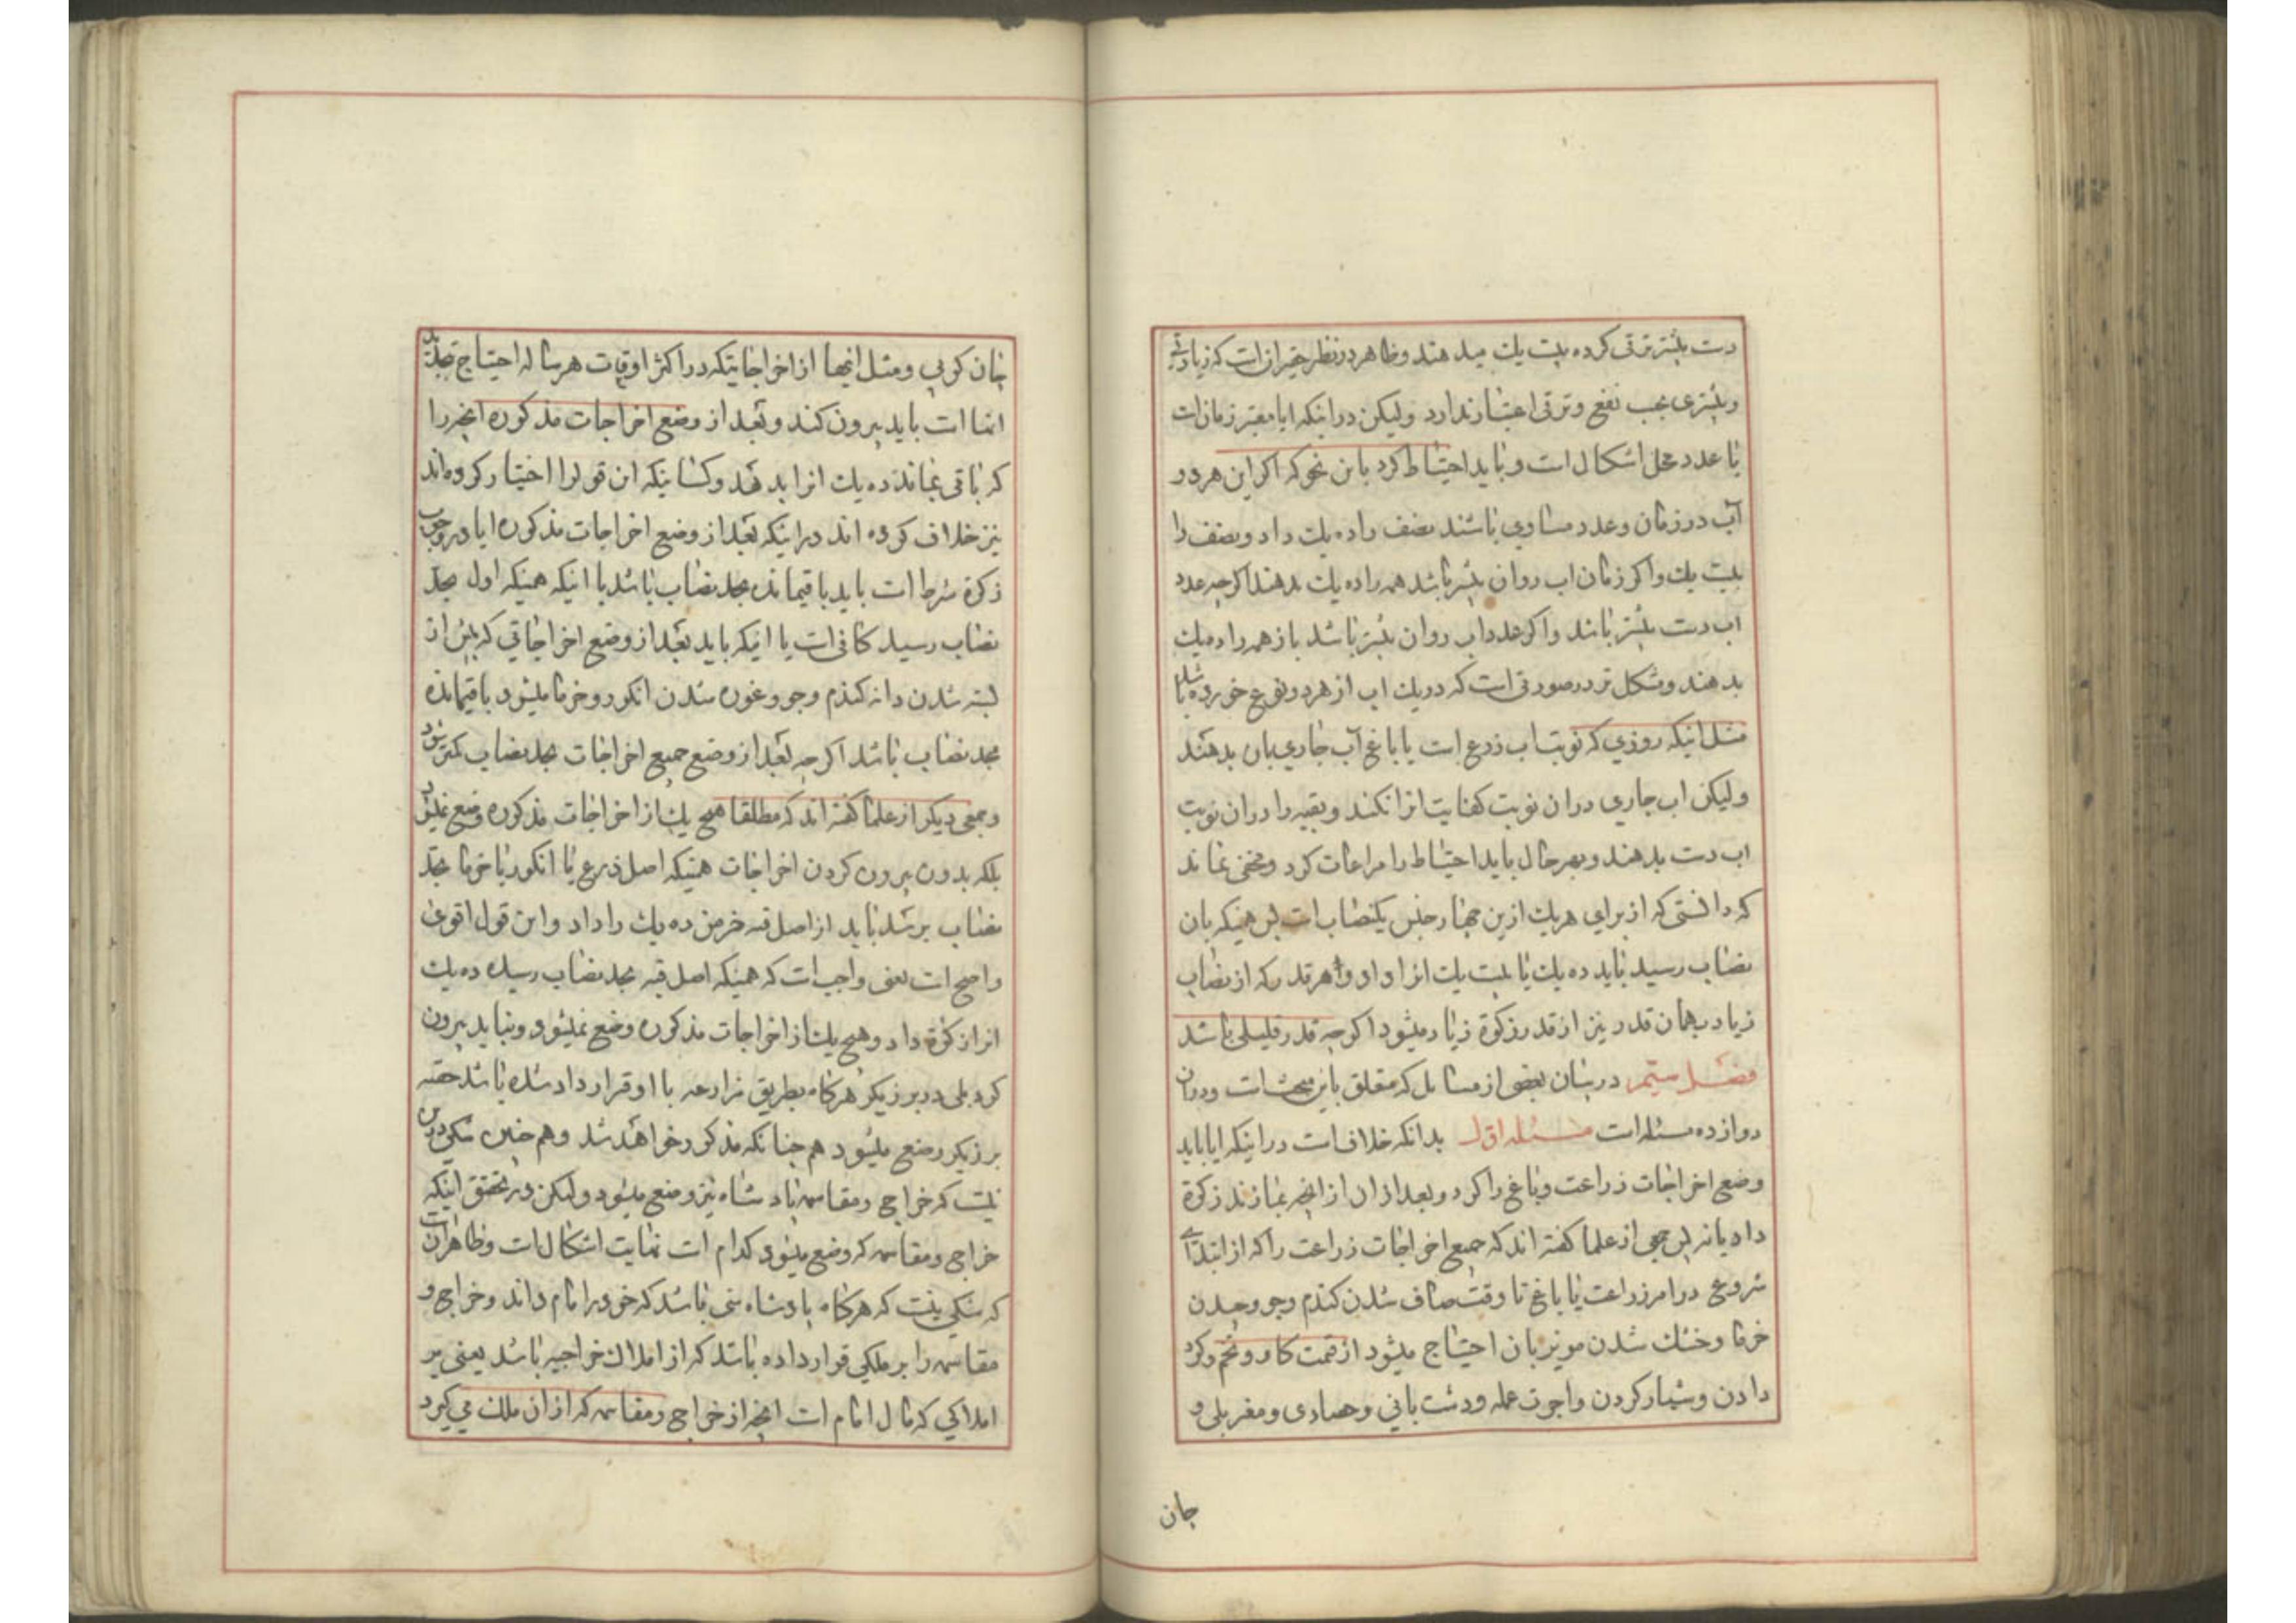 دست بیشتر ترقی کرده بیست یك میدهند و ظاهر در نظر حقیر آن است که زیادتی
و بیشتری بحسب نفع و ترقی اعتبار ندارد و لیکن در اینکه ایا معتبر زمان است
یا عدد محل اشکال است و باید احتیاط کرد باین نحو که اکر این هر دو
آب در زمان و عدد مساوی باشند نصف را ده یك داد و نصف را
بیست یك و اکر زمان اب روان بیشتر باشد همه را ده یك بدهند اکرچه عدد
اب دست بیشتر باشد و اکر عدد اب روان بیشتر باشد باز همه را ده یك
بدهند و مشکل تر در صورتی است که در یك اب از هر دو نوع خورده باشد
مثل اینکه روزی که نوبت اب زرع است یا باغ آب جاری بان بدهند
و لیکن اب جاری در ان نوبت کفایت انرا نکند و بقیه را در ان نوبت
اب دست بدهند و بهر حال باید احتیاط را مراعات کرد و مخفی نماند
که دانستی که از برای هر یك ازین چهار جنس یکنصاب است پس همینکه بان
نصاب رسید باید ده یك یا بیست یك انرا داد و هر قدر که از نصاب
زیاد بهمان قدر نیز از قدر زکوة زیاد میشود اکرچه قدر قلیلی باشد
فصل ستیم در بیان بعضی از مسائل که متعلق باین مبحث است و در ان
دوازده مسئله است مسئله اول بدانکه خلاف است در اینکه ایا باید
وضع اخراجات زراعت و باغ را کرد و بعد از ان از انچه بماند زکوة
داد یا نه پس جمعی از علما کفته اند که جمیع اخراجات زراعت را که از ابتدای
شروع در امر زراعت یا باغ تا وقت صاف شدن کندم و جو و چیدن
خرما و خشك شدن مویز بان احتیاج میشود از قیمت کاو و تخم و کود
دادن و شیار کردن و اجرت عمله و دشت بانی و حصادی و مغربلی و
جان
چان کوبی و مثل اینها از اخراجاتیکه در اکثر اوقات هر ساله احتیاج بتجدید
انها است باید بیرون کند و بعد از وضع اخراجات مذکوره انچه را
که باقی بماند ده یك انرا بدهند و کسانیکه این قول را اختیار کرده اند
نیز خلاف کرده اند در اینکه بعد از وضع اخراجات مذکوره ایا در وجوب
زکوة شرط است باید باقیمانده بحد نصاب باشد یا اینکه همینکه اول بحد
نصاب رسید کافی است یا اینکه باید بعد از وضع اخراجاتی که پیش از
بسته شدن دانه کندم و جو و غوره شدن انکور و خرما میشود باقیمانده
بحد نصاب باشد اکرچه بعد از وضع جمیع اخراجات بحد نصاب کمتر شود
و جمعی دیکر از علما کفته اند که مطلقا هیچ یك از اخراجات مذکوره وضع نمیشود
بلکه بدون بیرون کردن اخراجات همینکه اصل زرع یا انکور یا خرما بحد
نصاب برسد باید از اصل قبه خرمن ده یك را داد و این قول اقوی
و اصح است یعنی واجب است که همینکه اصل قبه بحد نصاب رسیده ده یك
انرا زکوة داد و هیچ یك از اخراجات مذکوره وضع نمیشود و نباید بیرون
کرد بلی در برزیکر هرکاه بطریق مزارعه با او قرار داد شده باشد حصه
برزیکر وضع میشود هم چنانکه مذکور خواهد شد و هم چنین شکی در این
نیست که خراج و مقاسمه پادشاه نیز وضع میشود و لیکن در تحقق اینکه
خراج و مقاسمه که وضع میشود کدام است نهایت اشکال است و ظاهر ان است
که شکی نیست که هرکاه پادشاه سنی باشد که خود را امام داند و خراج و
مقاسمه را بر ملکی قرار داده باشد که از املاك خراجیه باشد یعنی بر
املاکی که مال امام است انچه از خراج و مقاسمه که از ان ملك می کیرد